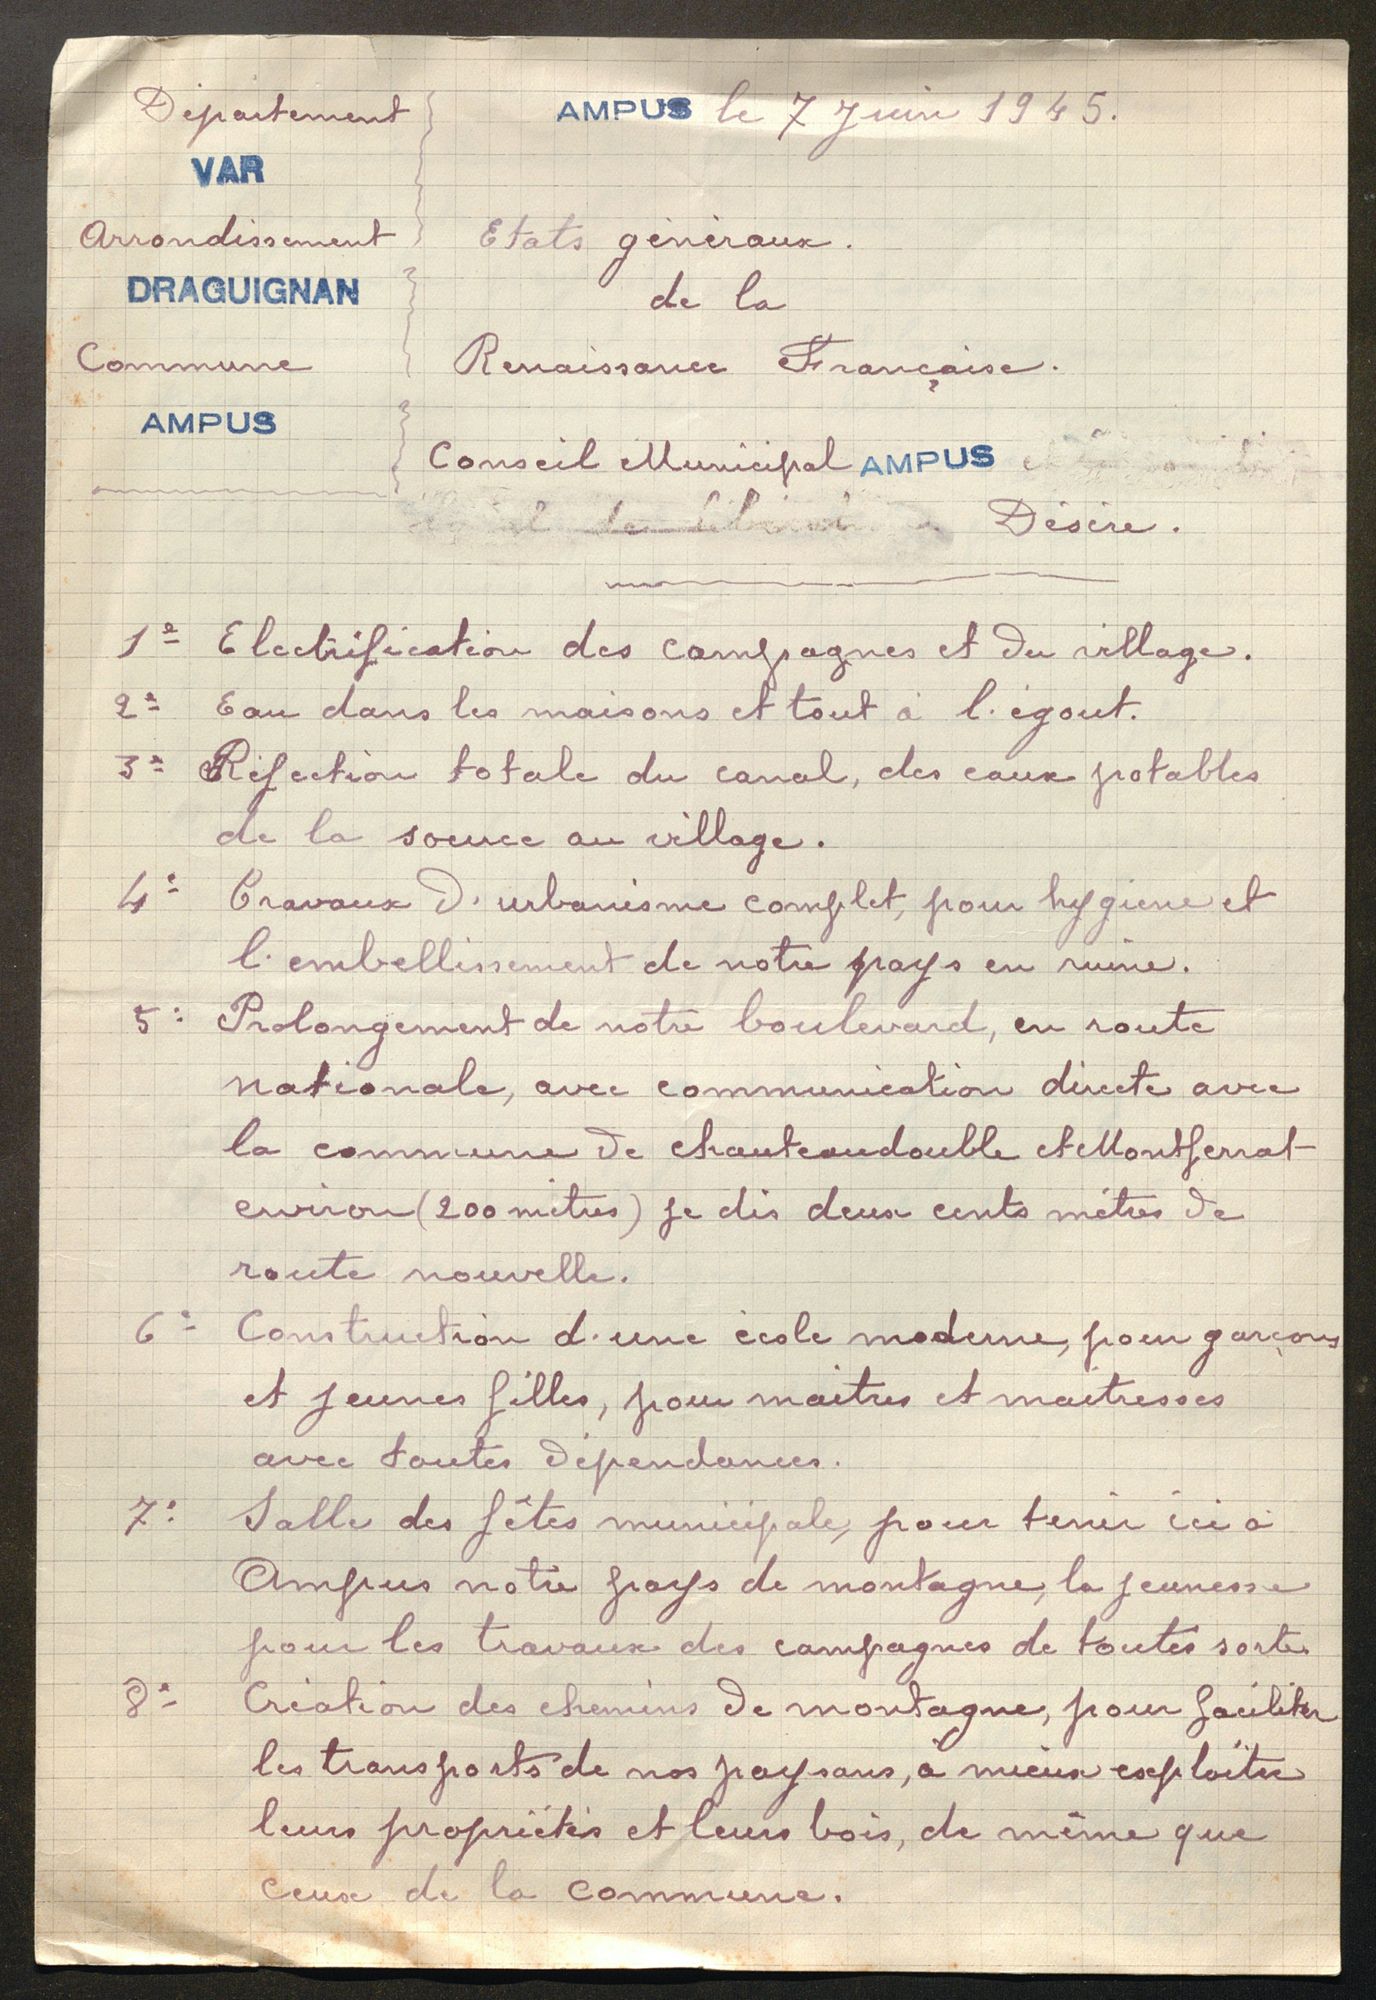 Département
AMPUS le 7 Juin 1945.
VAR
Arrondissement
Etats généraux.
DRAGUIGNAN
de la
Commune
Renaissance Française.
AMPUS
Conseil Municipal AMPUS
Désire.
1º Electrification des campagnes et du village.
2º Eau dans les maisons et tout à l'égout.
3º Réfection totale du canal, des eaux potables
de la source au village.
4º Travaux d'urbanisme complet, pour hygiene et
l'embellissement de notre pays en ruine.
5º Prolongement de notre boulevard, en route
nationale, avec communication directe avec
la commune de Chateaudouble et Montferrat
environ (200 mètres) je dis deux cents mètres de
route nouvelle.
6º Construction d'une école moderne, pour garçons
et jeunes filles, pour maitres et maitresses
avec toutes dépendances.
7º Salle des fêtes municipale, pour tenir ici à
Ampus notre pays de montagne, la jeunesse
pour les travaux des campagnes de toutes sortes
8º Création des chemins de montagne, pour faciliter
les transports de nos paysans, à mieux exploiter
leurs propriétés et leurs bois, de même que
ceux de la commune.